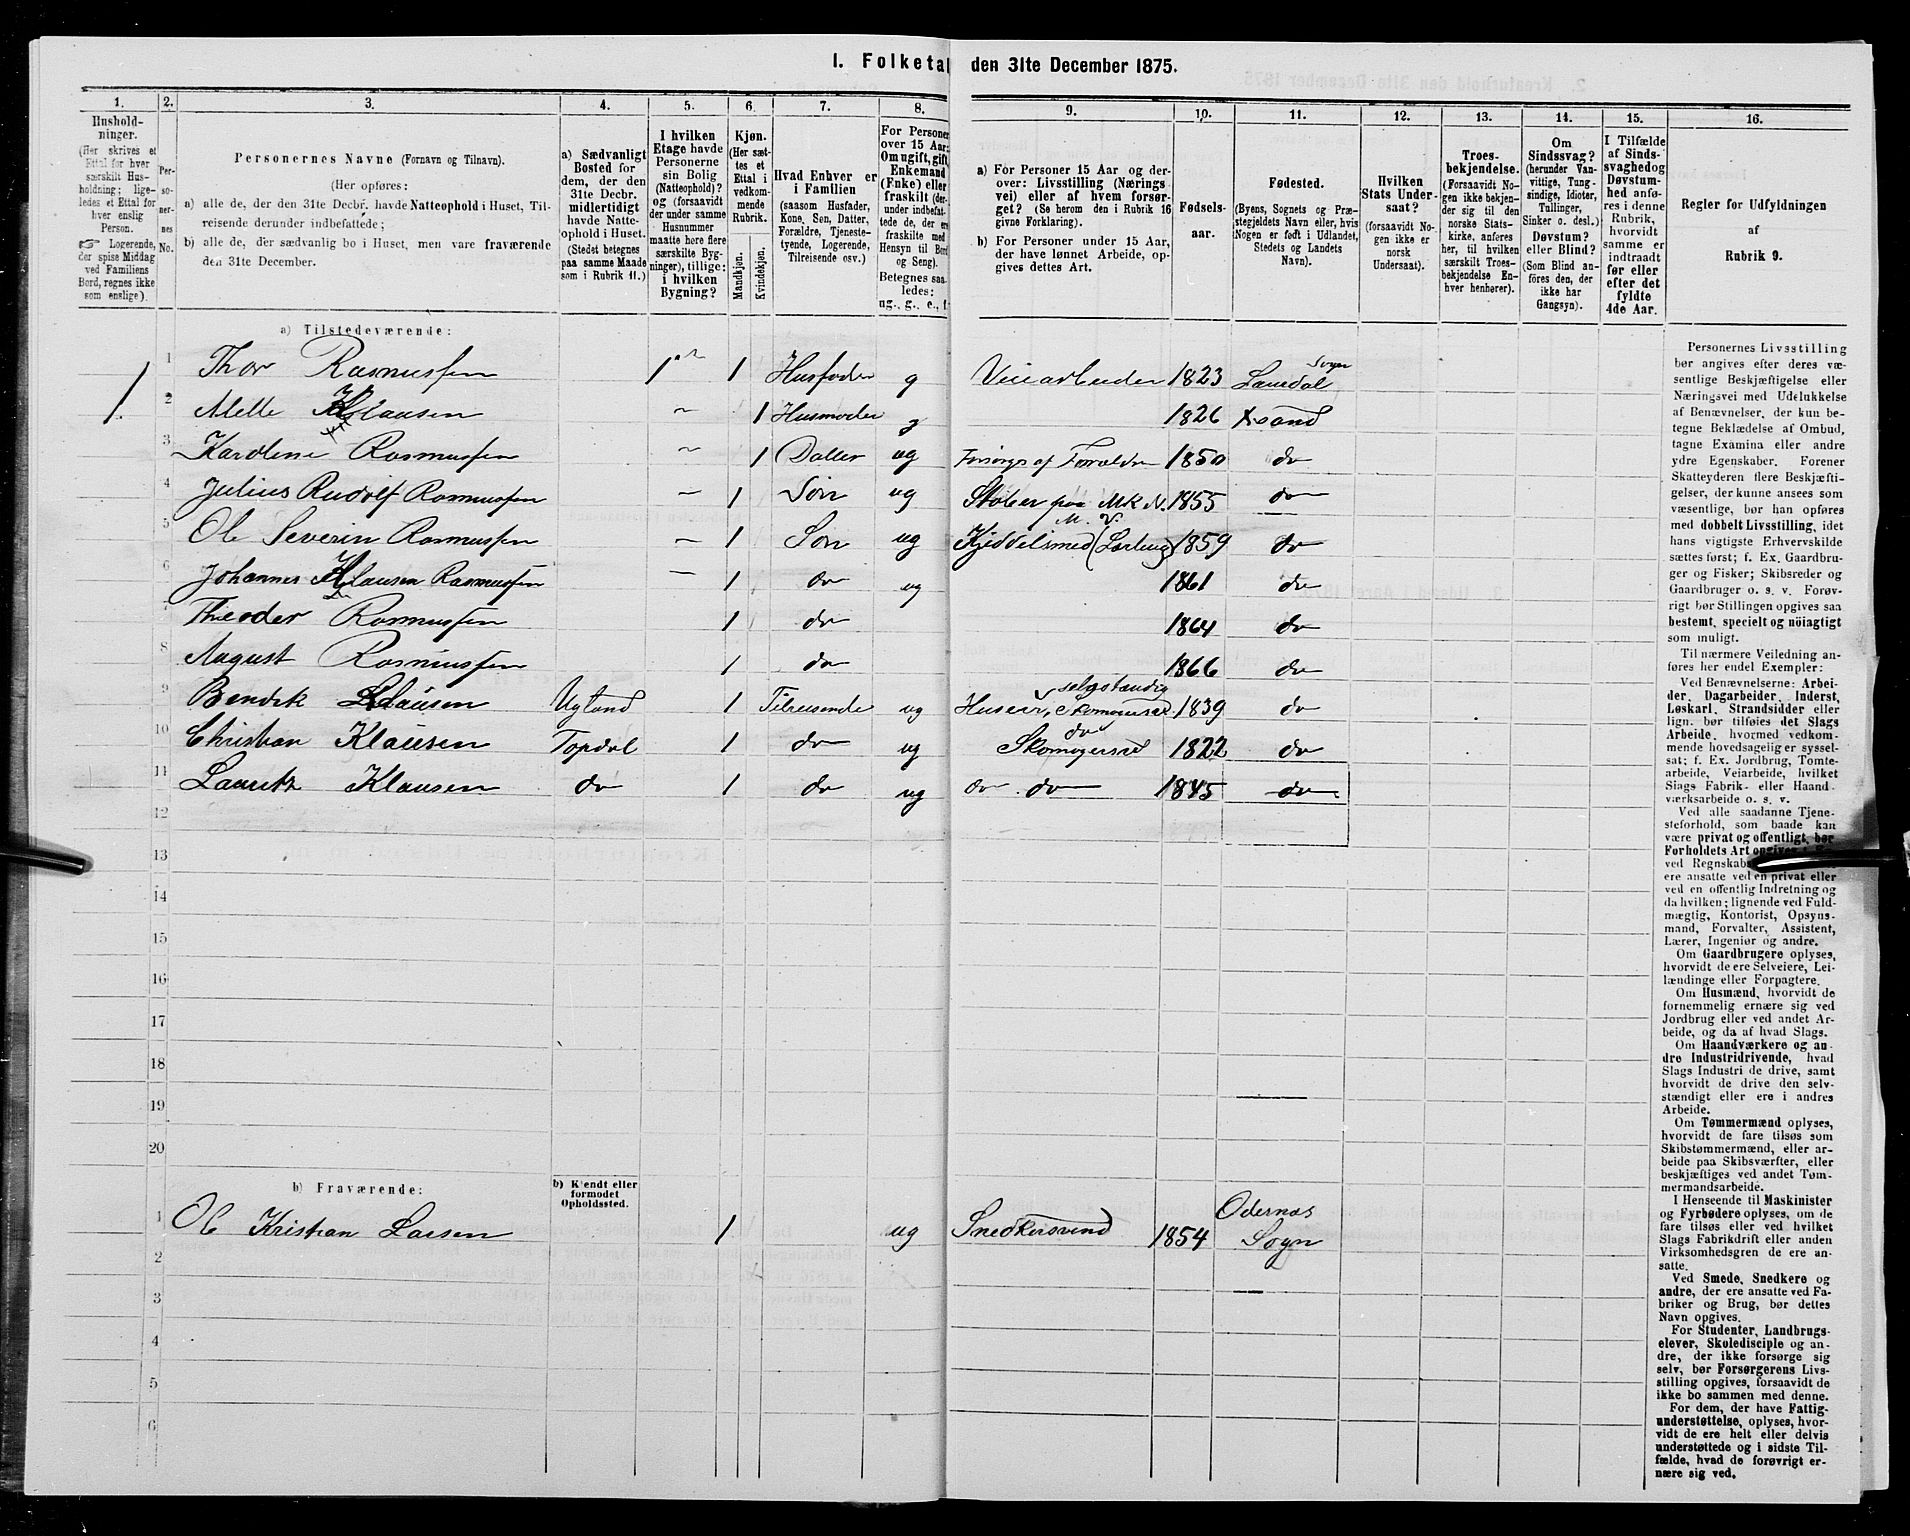 1. Folketal den 31te December 1875.
1.
Hushold-
ninger.
(Her skrives et
Ettal for hver
særskilt Hus-
holdning; lige-
ledes et Ettal for
hver enslig
Person.
☞ Logerende,
der spise Middag
ved Familiens
Bord, regnes ikke
som enslige).
2.
Per-
so-
ner-
nes
No.
3.
Personernes Navne (Fornavn og Tilnavn).
(Her opføres:
a) alle de, der den 31te Decbr. havde Natteophold i Huset, Til-
reisende derunder indbefattede;
b) alle de, der sædvanlig bo i Huset, men vare fraværende
den 31te December.
4.
a) Sædvanligt
Bosted for
dem, der den
31te Decbr.
midlertidigt
havde Natte-
ophold i Huset.
(Stedet betegnes
paa samme Maade
som i Rubrik 11.)
5.
I hvilken
Etage havde
Personerne
sin Bolig
(Natteophold)?
og (forsaavidt
der under samme
Husnummer
maatte høre flere
særskilte Byg-
ninger), tillige:
i hvilken
Bygning?
6.
Kjøn.
(Her sæt-
tes et
Ettal i
vedkom-
mende
Rubrik.
Mandkjøn.
Kvindekjøn.
7.
Hvad Enhver er
i Familien
(saasom Husfader,
Kone, Søn, Datter,
Forældre, Tjeneste-
tyende, Logerende,
Tilreisende osv.)
8.
For Personer
over 15 Aar:
Om ugift, gift,
Enkemand
(Enke) eller
fraskilt (der-
under indbefat-
tede de, der er
fraskilte med
Hensyn til Bord
og Seng).
Betegnes saa-
ledes:
ug., g., e., f.
9.
a) For Personer 15 Aar og der-
over: Livsstilling (Nærings-
vei) eller af hvem forsør-
get? (Se herom den i Rubrik 16
givne Forklaring).
b) For Personer under 15 Aar,
der have lønnet Arbeide, op-
gives dettes Art.
10.
Fødsels-
aar.
11.
Fødested.
(Byens, Sognets og Præ-
stegjeldets Navn eller, hvis
Nogen er født i Udlandet,
Stedets og Landets
Navn).
12.
Hvilken
Stats Under-
saat?
(forsaavidt No-
gen ikke er
norsk
Undersaat).
13.
Troes-
bekjendelse.
(Forsaavidt No-
gen ikke bekjen-
der sig til den
norske Stats-
kirke, anføres
her, til hvilken
særskilt Troes-
bekjendelse En-
hver henhører).
14.
Om
Sindssvag?
(herunder Van-
vittige, Tung-
sindige, Idioter,
Tullinger,
Sinker o. desl.)
Døvstum?
eller Blind?
(Som Blind an-
føres den, der
ikke har
Gangsyn).
15.
I Tilfælde
af Sinds-
svaghed og
Døvstum-
hed anfø-
res i denne
Rubrik,
hvorvidt
samme er
indtraadt
før eller
efter det
fyldte
4de Aar.
16.
Regler for Udfyldningen
af
Rubrik 9.
a) Tilstedeværende:
1 1 Thor Rasmussen 1 1 Husfader g Veiearbeider 1823 Laurdal Sogn
2 Mette Klausen 1 Husmoder g 1826 Xsand
3 Karoline Rasmussen 1 Datter ug Forsørges af Forældre 1850 do
4 Julius Rudolf Rasmussen 1 Søn ug 1855 do
5 Ole Severin Rasmussen 1 Søn ug Kjeddelsmed (Lærling) M. V. 1859 do
6 Johannes Klausen Rasmussen 1 do ug 1861 do
7 Theodor Rasmussen 1 do 1864 do
8 August Rasmussen 1 do 1866 do
9 Bendik Klausen Vgland 1 Tilreisende ug Huseier, selvstændig Skomagersvd 1839 do
10 Christian Klausen Topdal 1 do ug do Skomagersvd 1822 do
11 Lauritz Klausen do 1 do ug do do 1845 do
12
13
14
15
16
17
18
19
20
b) Fraværende:
b) Kjendt eller
formodet
Opholdssted.
1 Ole Kristian Larsen 1 ug Snedkersvend 1854 Odernæs Sogn
2
3
4
5
6
Personernes Livsstilling
bør angives efter deres væ-
sentlige Beskjæftigelse eller
Næringsvei med Udelukkelse
af Benævnelser, der kun be-
tegne Beklædelse af Ombud,
tagne Examina eller andre
ydre Egenskaber. Forener
Skatteyderen flere Beskjæfti-
gelser, der kunne ansees som
væsentlige, bør han opføres
med dobbelt Livsstilling, idet
hans vigtigste Erhvervskilde
sættes først; f. Ex. Gaardbru-
ger og Fisker; Skibsreder og
Gaardbruger o. s. v. Forøv-
rigt bør Stillingen opgives saa
bestemt, specielt og nöiagtigt
som muligt.
Til nærmere Veiledning an-
føres her endel Exempler:
Ved Benævnelserne: Arbei-
der, Dagarbeider, Inderst,
Løskarl, Strandsidder eller
lign. bør tilføies det Slags
Arbeide, hvormed vedkom-
mende hovedsagelig er syssel-
sat; f. Ex. Jordbrug, Tomte-
arbeide, Veiarbeide, hvilket
Slags Fabrik- eller Haand-
værksarbeide o. s. v.
Ved alle saadanne Tjene-
steforhold, som baade kan
være privat og offentligt, bør
Forholdets Art opgives,
ved Regnskabs
ere ansatte ved en privat eller
ved en offentlig Indretning og
da hvilken; lignende ved Fuld-
mægtig, Kontorist, Opsyns-
mand, Forvalter, Assistent,
Lærer, Ingeniør og andre.
Om Gaardbrugere oplyses,
hvorvidt de ere Selveiere, Lei-
lændinge eller Forpagtere.
Om Husmænd, hvorvidt de
fornemmelig ernære sig ved
Jordbrug eller ved andet Ar-
beide, og da af hvad Slags.
Om Haandværkere og an-
dre Industridrivende, hvad
Slags Industri de drive, samt
hvorvidt de drive den selv-
stændigt eller ere i andres
Arbeide.
Om Tømmermænd oplyses,
hvorvidt de fare tilsøs som
Skibstømmermænd, eller ar-
beide paa Skibsværfter, eller
beskjæftiges ved andet Tøm-
mermandsarbeide.
I Henseende til Maskinister
og Fyrbødere oplyses, om de
fare tilsøs eller ved hvilket
Slags Fabrikdrift eller anden
Virksomhedsgren de ere an-
satte.
Ved Smede, Snedkere og
andre, der ere ansatte ved Fa-
briker og Brug, bør dettes
Navn opgives.
For Studenter, Landbrugs-
elever, Skoledisciple og an-
dre, der ikke forsørge sig
selv, bør Forsørgerens Livs-
stilling opgives, forsaavidt de
ikke bo sammen med denne.
For dem, der have Fattig-
understøttelse, oplyses, hvor-
vidt de ere helt eller delvis
understøttede og i sidste Til-
fælde, hvad de forøvrigt er-
nære sig ved.